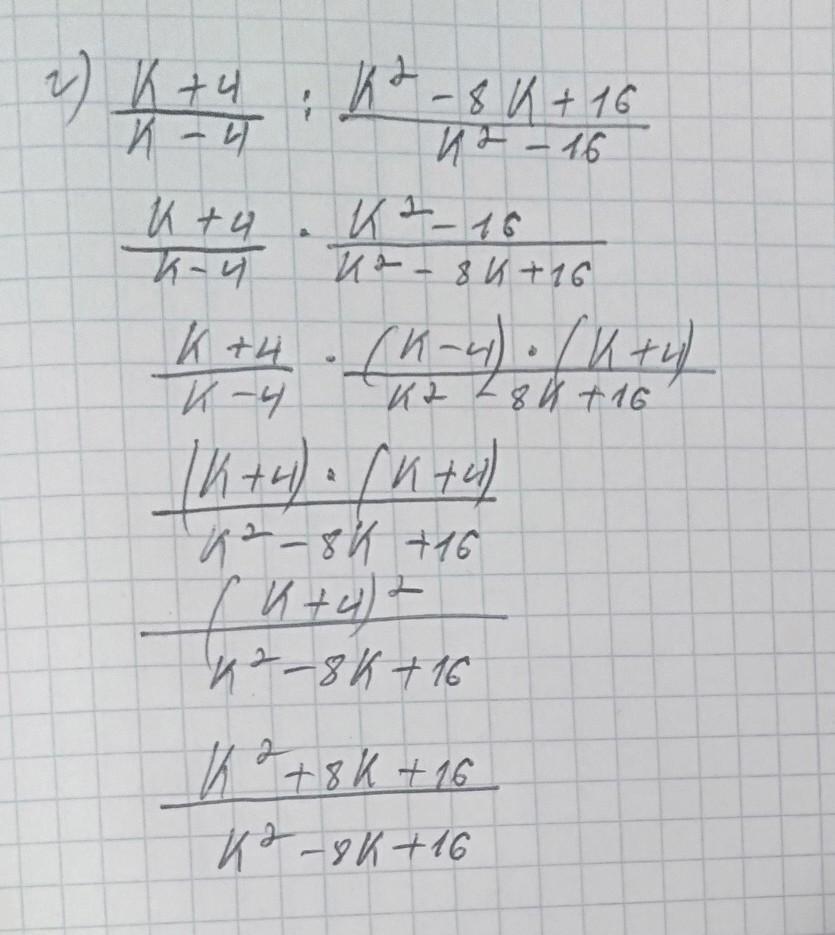 г) (K + 4)/(K - 4) : (K² - 8K + 16)/(K² - 16)
(K + 4)/(K - 4) · (K² - 16)/(K² - 8K + 16)
(K + 4)/(K - 4) · ((K - 4) · (K + 4))/(K² - 8K + 16)
((K + 4) · (K + 4))/(K² - 8K + 16)
(K + 4)²/(K² - 8K + 16)
(K² + 8K + 16)/(K² - 8K + 16)